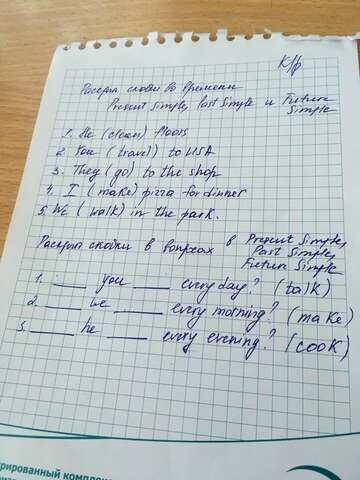 К/р
Раскрой скобки во времени
Present Simple, Past Simple и Future
Simple
1. He (clean) floors
2. You (travel) to USA
3. They (go) to the shop
4. I (make) pizza for dinner
5. We (walk) in the park.
Раскрой скобки в вопросах в Present Simple,
Past Simple,
Future Simple
1. ____ you ____ every day? (talk)
2. ____ we ____ every morning? (make)
3. ____ he ____ every evening? (cook)